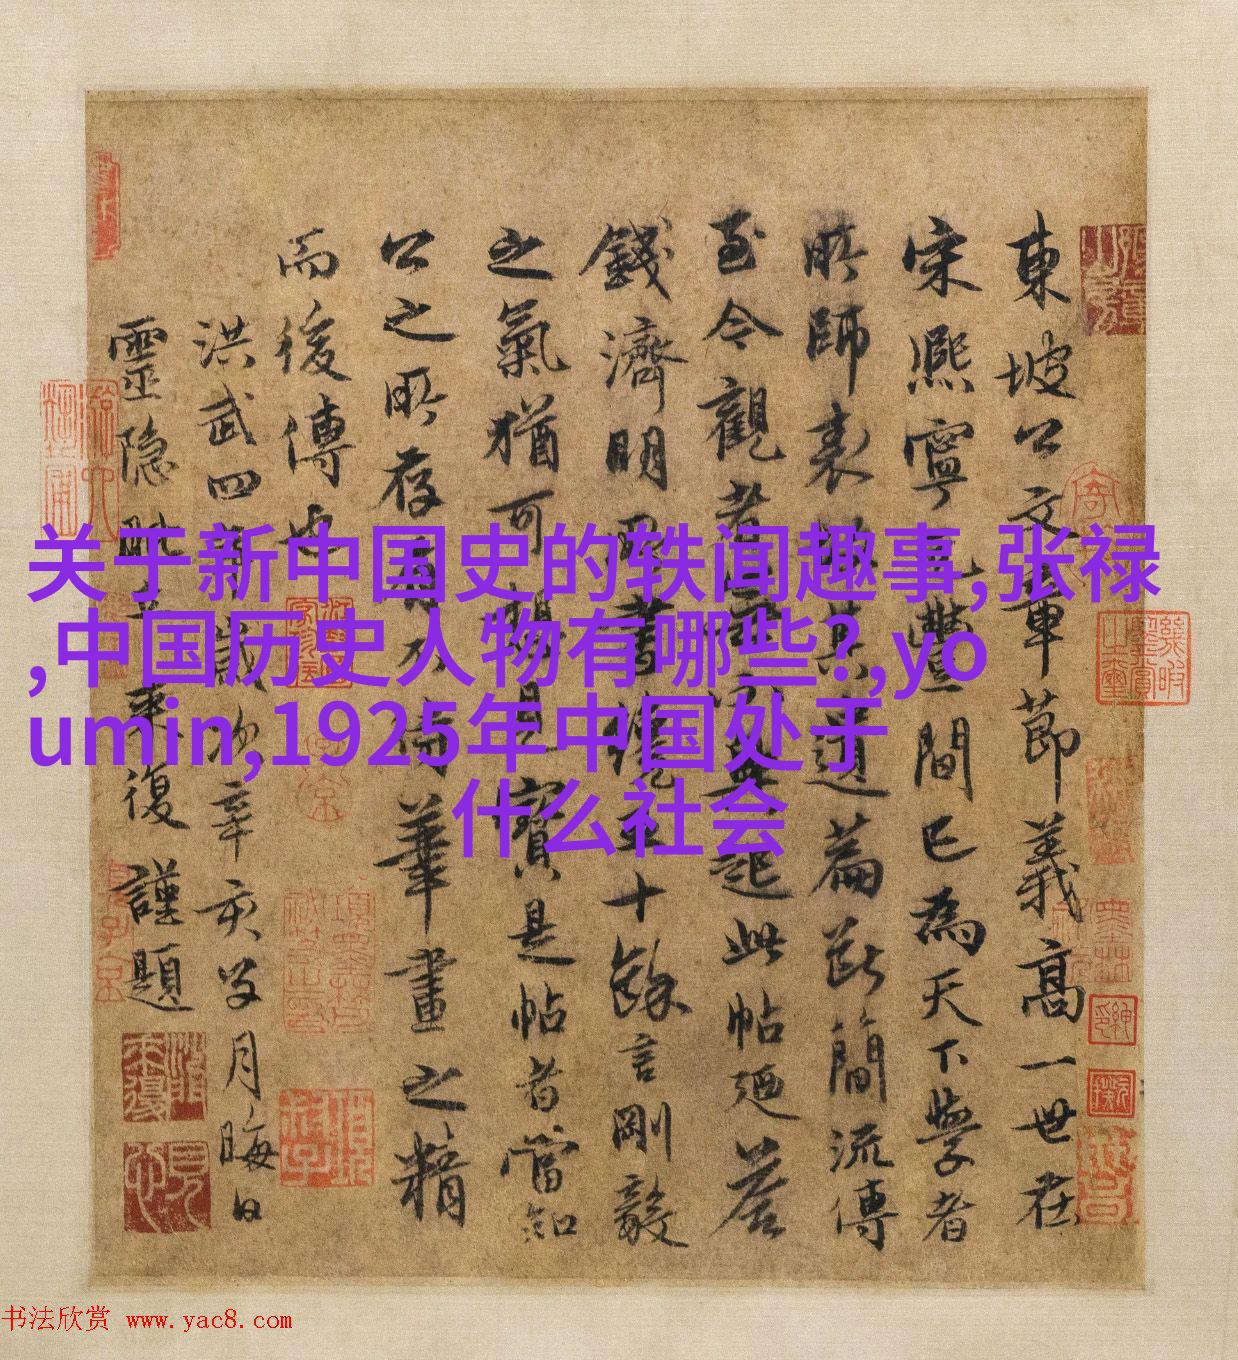 关于新中国史的轶闻趣事,张禄
,中国历史人物有哪些?,yo
umin,1925年中国处于
什么社会
東坡公文章節義高一世在
宋熙寧元豐間已為天下學者
所師表其遺篇斷簡流傳
至今觀者起此帖廼荅
錢濟明所書十餘言剛毅
之氣猶可想見寶是帖者當知
公之所存有不筆畫之精
而後傳也
洪武四年歲次辛亥月晦日
靈隱來復謹題
书法欣赏 www.yac8.com